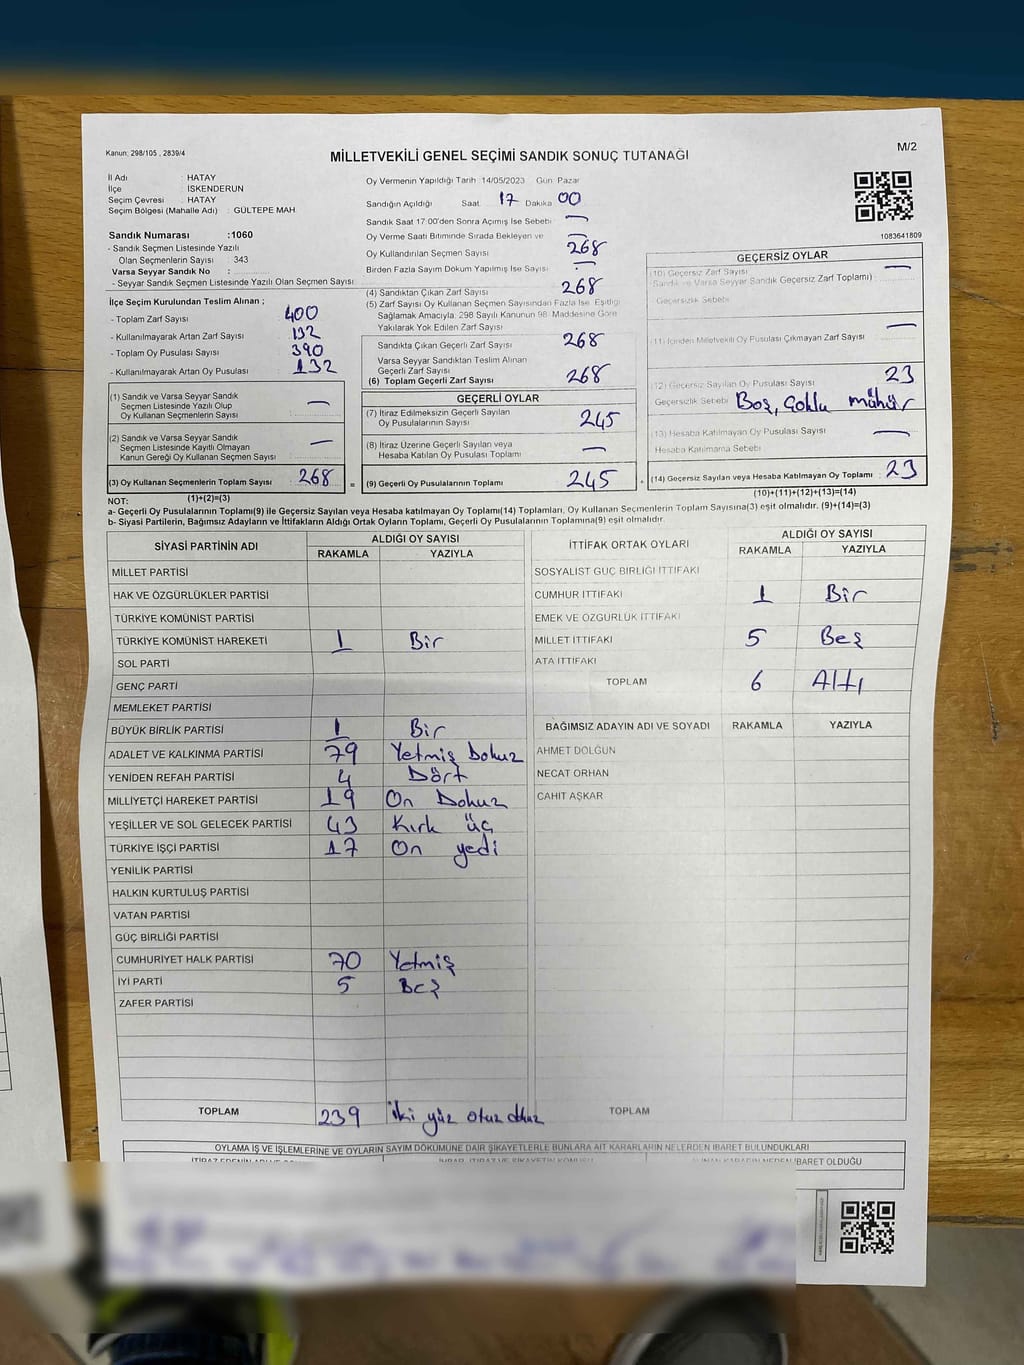 Kanun: 298/105 , 2839/4
MİLLETVEKİLİ GENEL SEÇİMİ SANDIK SONUÇ TUTANAĞI
M/2
İl Adı : HATAY
İlçe : İSKENDERUN
Seçim Çevresi : HATAY
Seçim Bölgesi (Mahalle Adı) : GÜLTEPE MAH.
Sandık Numarası :1060
- Sandık Seçmen Listesinde Yazılı
Olan Seçmenlerin Sayısı : 343
Varsa Seyyar Sandık No :
- Seyyar Sandık Seçmen Listesinde Yazılı Olan Seçmen Sayısı
İlçe Seçim Kurulundan Teslim Alınan ;
- Toplam Zarf Sayısı : 400
- Kullanılmayarak Artan Zarf Sayısı : 132
- Toplam Oy Pusulası Sayısı : 390
- Kullanılmayarak Artan Oy Pusulası : 132
(1) Sandık ve Varsa Seyyar Sandık
Seçmen Listesinde Yazılı Olup
Oy Kullanan Seçmenlerin Sayısı : —
(2) Sandık ve Varsa Seyyar Sandık
Seçmen Listesinde Kayıtlı Olmayan
Kanun Gereği Oy Kullanan Seçmen Sayısı : —
(3) Oy Kullanan Seçmenlerin Toplam Sayısı : 268
(1)+(2)=(3)
Oy Vermenin Yapıldığı Tarih 14/05/2023 Gün Pazar
Sandığın Açıldığı Saat 17 Dakika 00
Sandık Saat 17:00'den Sonra Açımış İse Sebebi —
Oy Verme Saati Bitiminde Sırada Bekleyen ve —
Oy Kullandırılan Seçmen Sayısı 268
Birden Fazla Sayım Döküm Yapılmış İse Sayısı —
(4) Sandıktan Çıkan Zarf Sayısı 268
(5) Zarf Sayısı Oy Kullanan Seçmen Sayısından Fazla İse, Eşitliği
Sağlamak Amacıyla, 298 Sayılı Kanunun 98. Maddesine Göre
Yakılarak Yok Edilen Zarf Sayısı
Sandıkta Çıkan Geçerli Zarf Sayısı 268
Varsa Seyyar Sandıktan Teslim Alınan
Geçerli Zarf Sayısı
(6) Toplam Geçerli Zarf Sayısı 268
GEÇERLİ OYLAR
(7) İtiraz Edilmeksizin Geçerli Sayılan
Oy Pusulalarının Sayısı 245
(8) İtiraz Üzerine Geçerli Sayılan veya
Hesaba Katılan Oy Pusulası Toplamı —
= (9) Geçerli Oy Pusulalarının Toplamı 245 +
1083641809
GEÇERSİZ OYLAR
(10) Geçersiz Zarf Sayısı —
(Sandık ve Varsa Seyyar Sandık Geçersiz Zarf Toplamı) :
Geçersizlik Sebebi
(11) İçinden Milletvekili Oy Pusulası Çıkmayan Zarf Sayısı —
(12) Geçersiz Sayılan Oy Pusulası Sayısı 23
Geçersizlik Sebebi Boş, Çoklu mühür
(13) Hesaba Katılmayan Oy Pusulası Sayısı —
Hesaba Katılmama Sebebi
(14) Geçersiz Sayılan veya Hesaba Katılmayan Oy Toplamı : 23
(10)+(11)+(12)+(13)=(14)
NOT:
a- Geçerli Oy Pusulalarının Toplamı(9) ile Geçersiz Sayılan veya Hesaba katılmayan Oy Toplamı(14) Toplamları, Oy Kullanan Seçmenlerin Toplam Sayısına(3) eşit olmalıdır. (9)+(14)=(3)
b- Siyasi Partilerin, Bağımsız Adayların ve İttifakların Aldığı Ortak Oyların Toplamı, Geçerli Oy Pusulalarının Toplamına(9) eşit olmalıdır.
SİYASİ PARTİNİN ADI ALDIĞI OY SAYISI
RAKAMLA YAZIYLA
MİLLET PARTİSİ
HAK VE ÖZGÜRLÜKLER PARTİSİ
TÜRKİYE KOMÜNİST PARTİSİ
TÜRKİYE KOMÜNİST HAREKETİ 1 Bir
SOL PARTİ
GENÇ PARTİ
MEMLEKET PARTİSİ
BÜYÜK BİRLİK PARTİSİ 1 Bir
ADALET VE KALKINMA PARTİSİ 79 Yetmiş Dokuz
YENİDEN REFAH PARTİSİ 4 Dört
MİLLİYETÇİ HAREKET PARTİSİ 19 On Dokuz
YEŞİLLER VE SOL GELECEK PARTİSİ 43 Kırk üç
TÜRKİYE İŞÇİ PARTİSİ 17 On yedi
YENİLİK PARTİSİ
HALKIN KURTULUŞ PARTİSİ
VATAN PARTİSİ
GÜÇ BİRLİĞİ PARTİSİ
CUMHURİYET HALK PARTİSİ 70 Yetmiş
İYİ PARTİ 5 Beş
ZAFER PARTİSİ
TOPLAM 239 İki yüz otuz dokuz
İTTİFAK ORTAK OYLARI ALDIĞI OY SAYISI
RAKAMLA YAZIYLA
SOSYALİST GÜÇ BİRLİĞİ İTTİFAKI
CUMHUR İTTİFAKI 1 Bir
EMEK VE ÖZGÜRLÜK İTTİFAKI
MİLLET İTTİFAKI 5 Beş
ATA İTTİFAKI
TOPLAM 6 Altı
BAĞIMSIZ ADAYIN ADI VE SOYADI RAKAMLA YAZIYLA
AHMET DOLĞUN
NECAT ORHAN
CAHİT AŞKAR
TOPLAM
OYLAMA İŞ VE İŞLEMLERİNE VE OYLARIN SAYIM DÖKÜMÜNE DAİR ŞİKAYETLERLE BUNLARA AİT KARARLARIN NELERDEN İBARET BULUNDUKLARI